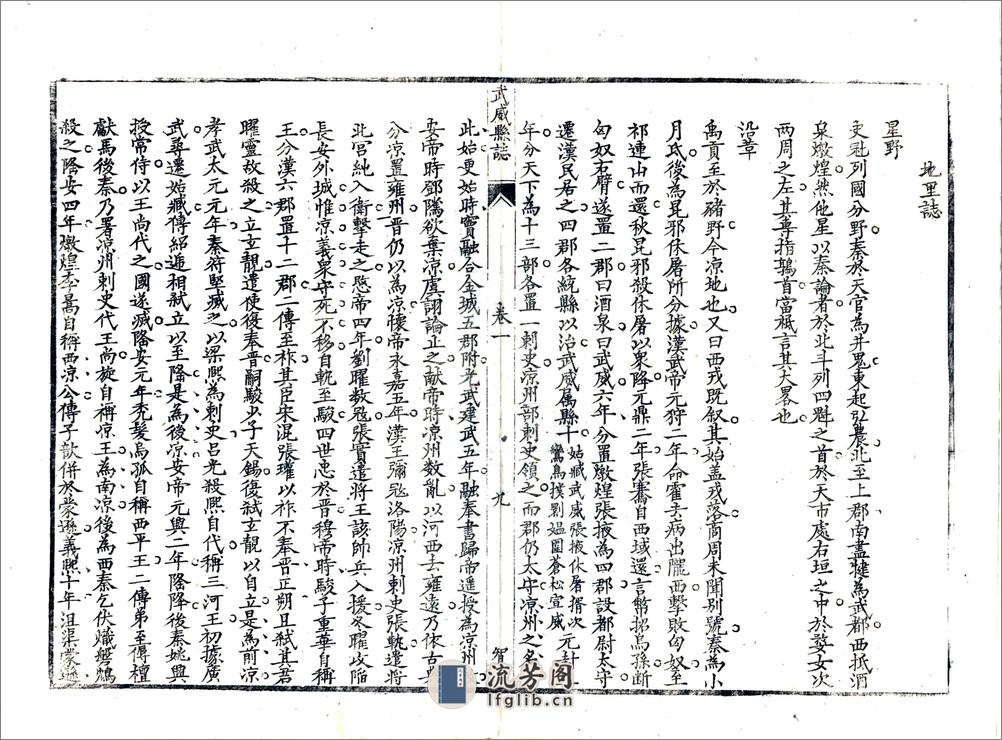 地里誌
星野
史紀列國分野秦於天官為井鬼東起弘農北至上郡南盡犍為武都西抵酒
泉燉煌然他星以秦論者於北斗列四魁之首於天市處右垣之中於婺女次
兩周之左其專指鶉首當概言其大畧也
沿革
禹貢至於豬野今涼地也又曰西戎既叙其始蓋戎落商周未聞別號秦為小
月氏後為昆邪休屠所分據漢武帝元狩二年命霍去病出隴西擊敗匈奴至
祁連山而還秋昆邪殺休屠以衆降元鼎二年張騫自西域還言幣招烏孫斷
匈奴右臂遂置二郡曰酒泉曰武威六年分置燉煌張掖為四郡設都尉太守
遷漢民居之四郡各統縣以治武威属縣十姑臧武威張掖休屠揟次鸞鳥撲劅媼圍蒼松宣威元封
年分天下為十三部各置一刺史涼州部刺史領之而郡仍太守涼州之名
武威縣誌
卷一
九
此始更始時竇融合金城五郡附光武建武五年融奉書歸帝遥授為涼州
安帝時鄧隲欲棄涼虞詡論止之献帝時涼州数亂以河西去雍遠乃休古
分凉置雍州晋仍以為凉懷帝永嘉五年漢王彌冦洛陽凉州刺史張軌遣將
北宫純入衛擊走之愍帝四年劉曜数冦張寳遣將王該帥兵入援冬曜攻陷
長安外城惟凉義衆守死不移自軌至駿四世忠於晋穆帝時駿子重華自稱
王分漢六郡置十二郡二傳至祚其臣宋混張瓘以祚不奉晋正朔且弑其君
曜靈故殺之立玄靚遣使復奉晋嗣駿少子天錫復弑玄靚以自立是為前凉
孝武太元元年秦苻堅滅之以梁熙為刺史吕光殺熙自代稱三河王初據廣
武尋遷姑臧傳紹遞相弑立以至隆是為後凉安帝元興二年隆降後秦姚興
授常侍以王尚代之國遂滅隆安元年禿髮烏孤自稱西平王二傳弟至傉檀
獻馬後秦乃署凉州刺史代王尚旋自稱凉王為南凉後為西秦乞伏熾磐鴆
殺之隆安四年燉煌李暠自稱西凉公傳子歆併於蒙遜義熙十年沮渠蒙遜
流芳阁
lfglib.cn